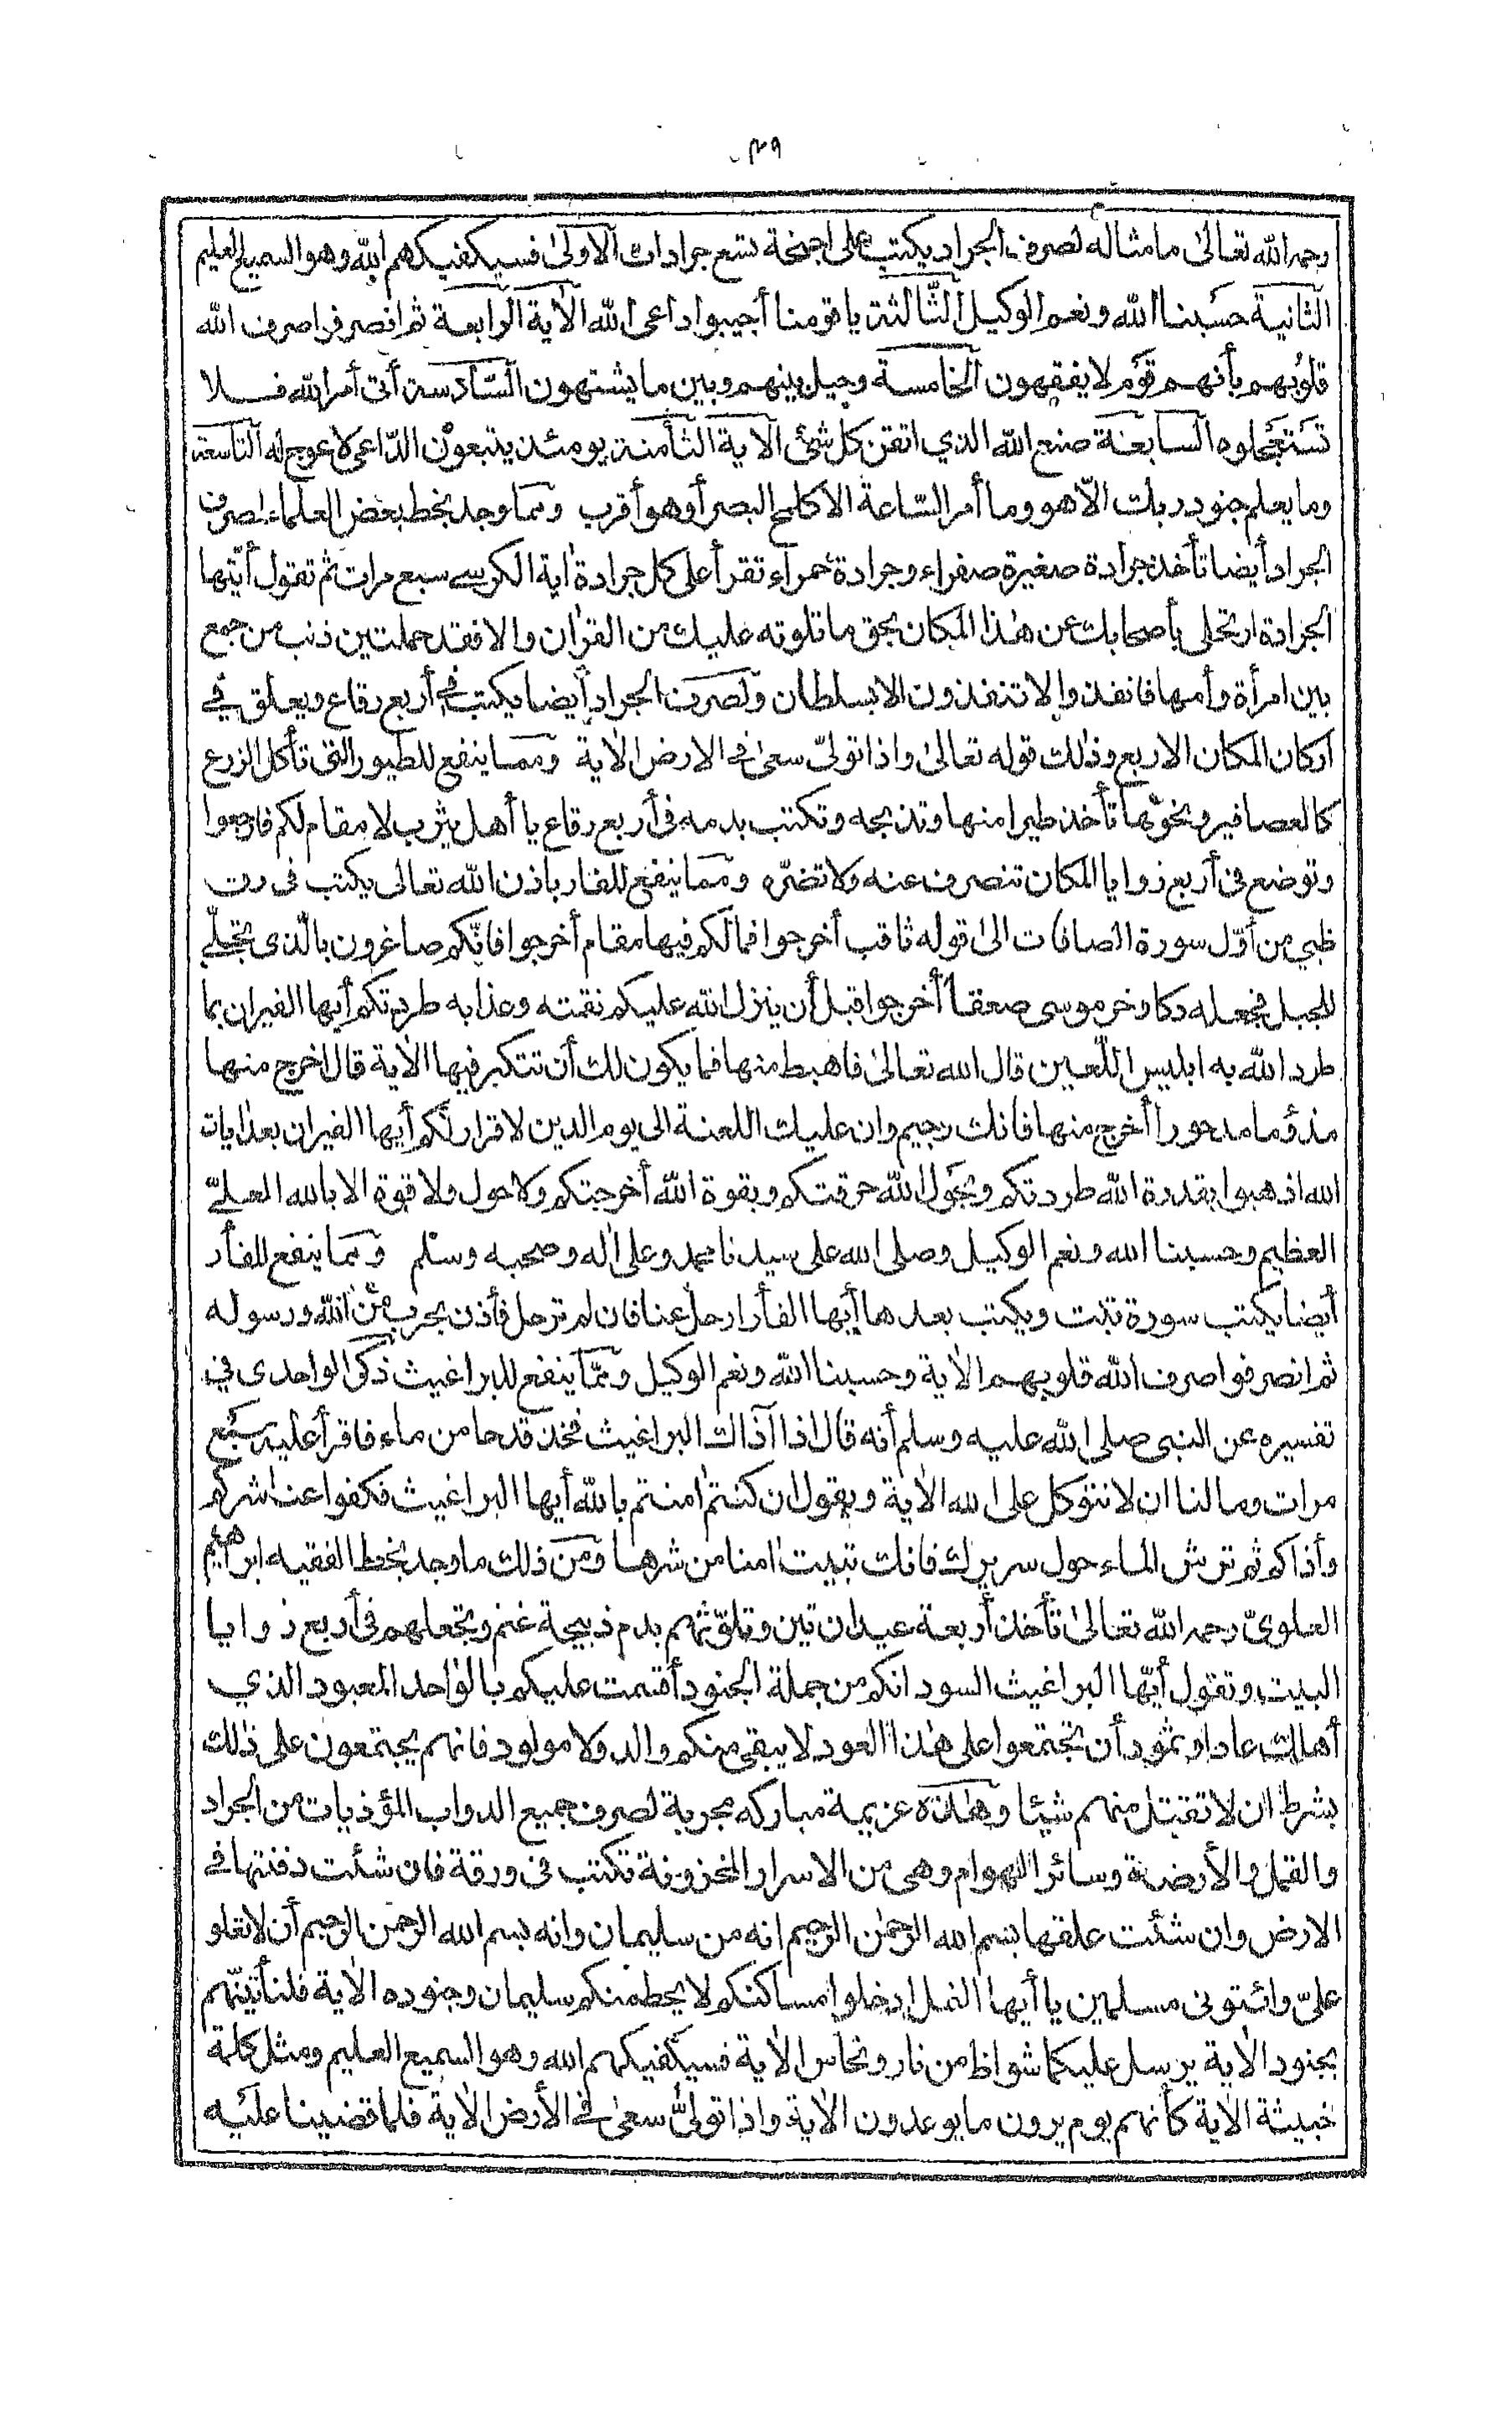 ٣٩
رحمه الله تعالىٰ ما مثاله لصرف الجراد يكتب على اجنحة تسع جرادات الاولىٰ فسيكفيكهم الله وهو السميع العليم
الثانية حسبنا الله ونعم الوكيل الثّالثة يا قومنا أجيبوا داعى الله الاٰية الرابعة ثم انصرفوا صرف الله
قلوبهم بأنهم قوم لا يفقهون الخامسة وحيل بينهم وبين ما يشتهون السّادسة أتى أمر الله فلا
تستعجلوه السابعة صنع الله الذي اتقن كل شئ الاٰية الثامنة يومئذ يتبعون الدّاعى لا عوج له التاسعة
وما يعلم جنود ربك الّا هو وما أمر السّاعة الا كلمح البصر أو هو أقرب ومما وجد بخط بعض العلماء لصرف
الجراد أيضا تأخذ جرادة صغيرة صفراء وجرادة حمراء تقرأ على كل جرادة اٰية الكرسى سبع مرات ثم تقول أيتها
الجرادة ارتحلى بأصحابك عن هٰذا المكان بحق ما تلوته عليك من القراٰن والا فقد حملت ين ذنب من جمع
بين امرأة وأمها فانفذوا لا تنفذون الا بسلطان ولصرف الجراد أيضا يكتب فى أربع رقاع ويعلق في
اركان المكان الاربع وذٰلك قوله تعالىٰ واذا تولىّ سعىٰ فى الارض الاٰية ومما ينفع للطيور التى تأكل الزرع
كالعصافير ونحوها تأخذ طيرا منها وتذبحه وتكتب بدمه فى أربع رقاع يا أهل يثرب لا مقام لكم فارجعوا
وتوضع فى أربع زوايا المكان تنصرف عنه ولا تضرّه ومما ينفع للفار باذن الله تعالى يكتب فى رق
ظبي من أوّل سورة الصافات الىٰ قوله ثاقب أخرجوا فما لكم فيها مقام أخرجوا فانّكم صاغرون بالّذى تجلّى
للجبل فجعله دكا وخر موسى صعقا أخرجوا قبل أن ينزل الله عليكم نقمته وعذابه طردتكم أيها الفيران بما
طرد الله به ابليس اللّعين قال الله تعالىٰ فاهبط منها فما يكون لك أن تتكبر فيها الاٰية قال اخرج منها
مذؤما مدحورا أخرج منها فانك رجيم وان عليك اللعنة الى يوم الدين لا قرار لكم أيها الفيران بعد اٰيات
الله اذهبوا بقدرة الله طردتكم وبحول الله حرقتكم وبقوة الله أخرجتكم ولا حول ولا قوة الا بالله العلىّ
العظيم وحسبنا الله ونعم الوكيل وصلى الله على سيدنا محمد وعلى اٰله وصحبه وسلم ومما ينفع للفأر
أيضا يكتب سورة تبت ويكتب بعدها أيها الفأر ارحل عنا فان لم ترحل فأذن بحرب من الله ورسوله
ثم انصرفوا صرف الله قلوبهم الاٰية وحسبنا الله ونعم الوكيل وممّا ينفع للبراغيث ذكر الواحدى في
تفسيره عن النبى صلى الله عليه وسلم أنه قال اذا آذاك البراغيث فخذ قدحا من ماء فاقرأ عليه سبع
مرات وما لنا ان لا نتوكل على الله الاٰية ويقول ان كنتم اٰمنتم بالله أيها البراغيث فكفوا عنا شركم
وأذاكم ثم ترش الماء حول سريرك فانك تبيت اٰمنا من شرها ومن ذلك ما وجد بخط الفقيه ابراهيم
العلوىّ رحمه الله تعالىٰ تأخذ أربعة عيدان تين وتلوّثهم بدم ذبيحة غنم وتجعلهم فى أربع زوايا
البيت وتقول أيّها البراغيث السود انكم من جملة الجنود أقسمت عليكم بالوٰاحد المعبود الذي
أهلك عادا وثمود أن تجتمعوا على هٰذا العود لا يبقى منكم والد ولا مولود فانهم يجتمعون على ذٰلك
بشرط ان لا تقتل منهم شيئا وهٰذه عزيمة مباركه مجربة لصرف جميع الدواب المؤذيات من الجراد
والقمل والأرضة وسائر الهوام وهى من الاسرار المخزونة تكتب فى ورقة فان شئت دفنتها فى
الارض وان شئت علقتها بسم الله الرحمٰن الرحيم انه من سليمان وانه بسم الله الرحمٰن الرحيم أن لا تعلو
علىّ وائتونى مسلمين يا أيها النمل ادخلوا مساكنكم لا يحطمنكم سليمان وجنوده الاٰية فلنأتينّهم
بجنود الاٰية يرسل عليكما شواظ من نار ونحاس الاٰية فسيكفيكهم الله وهو السميع العليم ومثل كلمة
خبيثة الاٰية كأنهم يوم يرون ما يوعدون الاٰية واذا تولىّ سعىٰ فى الأرض الاٰية فلما قضينا عليه